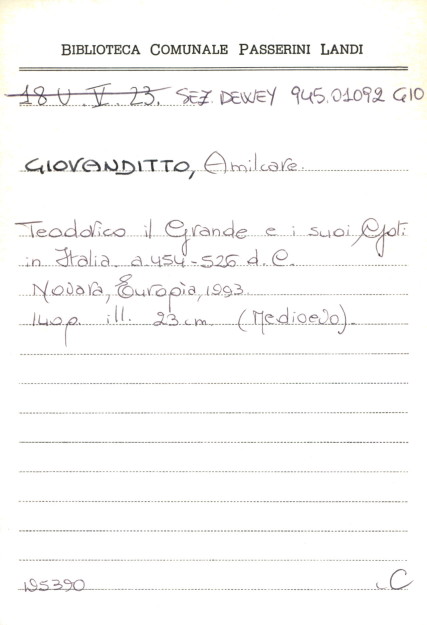 BIBLIOTECA COMUNALE PASSERINI LANDI
18 U. V. 23. SEZ. DEWEY 945.01092 GIO
GIOVANDITTO, Amilcare.
Teodorico il Grande e i suoi Goti
in Italia. a.454-526 d.C.
Novara, Europìa, 1993.
140p. ill. 23 cm. (Medioevo).
195390 C